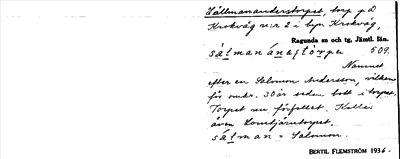 Källmananderstorpet, torp på
Krokvåg n:r 2 i byn Krokvåg,
Ragunda sn och tg, Jämtl. län.
509.
Namnet
efter en Salomon Andersson, vilken
för omkr. 30 år sedan bott i torpet.
Torpet nu förfallet. Kallas
även Lomtjärntorpet.
sálman = Salomon.
BERTIL FLEMSTRÖM 1936.